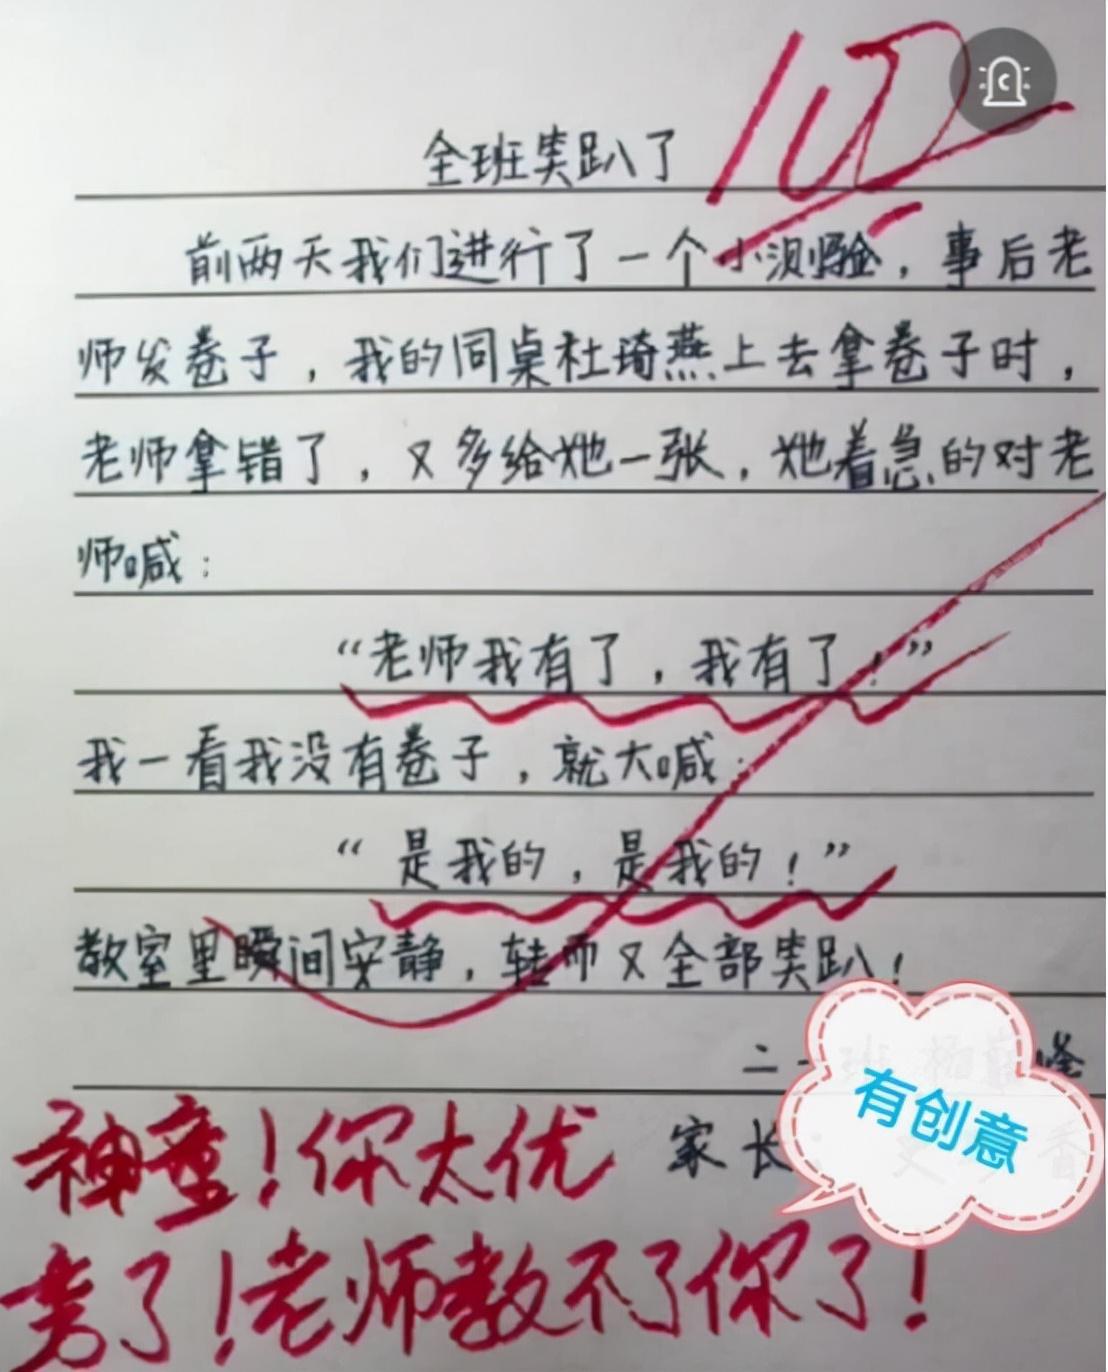 100
全班笑趴了
前两天我们进行了一个小测验，事后老
师发卷子，我的同桌杜琦燕上去拿卷子时，
老师拿错了，又多给她一张，她着急的对老
师喊：
“老师我有了，我有了！”
我一看我没有卷子，就大喊：
“是我的，是我的！”
教室里瞬间安静，转而又全部笑趴！
二一班
家长：
有创意
神童！你太优
秀了！老师教不了你了！